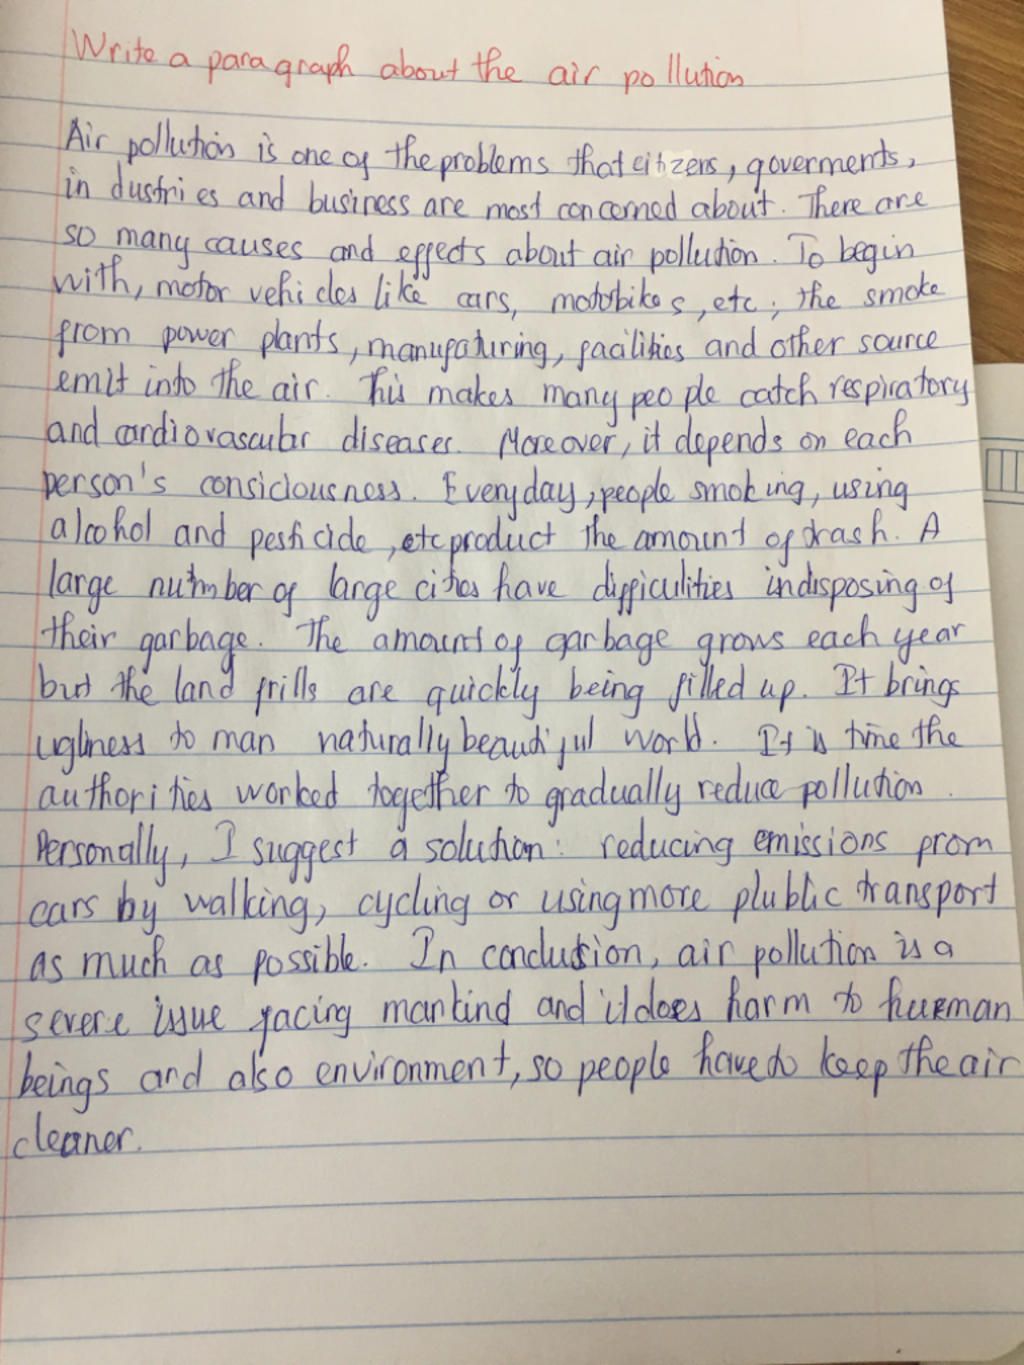 Write a paragraph about the air pollution
Air pollution is one of the problems that citizens, goverments,
in dustries and business are most concerned about. There are
so many causes and effects about air pollution. To begin
with, motor vehicles like cars, motorbikes, etc; the smoke
from power plants, manufaturing, facilities and other source
emit into the air. This makes many people catch respiratory
and cardiovascular diseases. Moreover, it depends on each
person's consiciousness. Everyday, people smoking, using
alcohol and pesticide, etc product the amount of trash. A
large number of large cities have difficulities in disposing of
their garbage. The amount of garbage grows each year
but the land frills are quickly being filled up. It brings
ugliness to man naturally beautiful world. It is time the
authorities worked together to gradually reduce pollution.
Personally, I suggest a solution: reducing emissions from
cars by walking, cycling or using more plublic transport
as much as possible. In conclusion, air pollution is a
severe issue facing mankind and it does harm to human
beings and also environment, so people have to keep the air
cleaner.